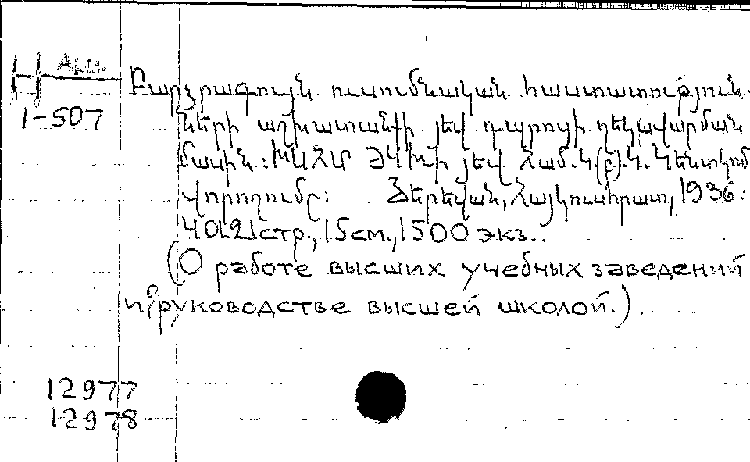 Բարձրագույն ուսումնական հաստատություն-
1-507
ների աշխատանքի յեվ դպրոցի ղեկավարման
մասին: ԽՍՀՄ ԺԿԽ-ի յեվ Համ.Կ(բ)Կ Կենտկոմ
վորոշումը: Յերեվան, Հայկուսհրատ, 1936:
40.2.1 стр., 15 см., 1500 экз..
(О работе высших учебных заведений
и руководстве высшей школой.)
12977
12978